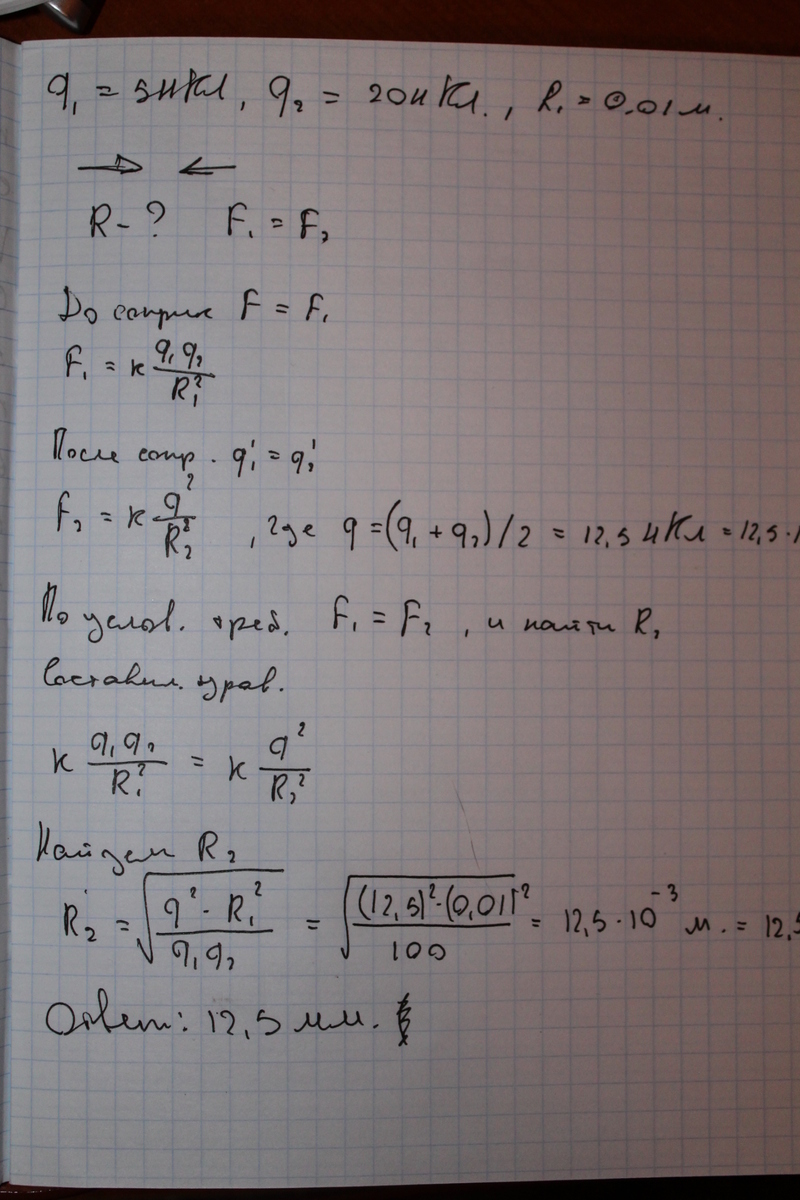 q₁ = 5нКл, q₂ = 20нКл., R₁ = 0.01м.
R-? F₁ = F₂
До соприк F = F₁
F₁ = к q₁q₂/R₁²
После сопр. q₁' = q₂'
F₂ = к q²/R₂², где q = (q₁ + q₂)/2 = 12,5 нКл = 12,5·1
По услов. треб. F₁ = F₂, и найти R₂
Составим. урав.
к q₁q₂/R₁² = к q²/R₂²
Найдем R₂
R₂ = √(q²·R₁²/q₁q₂) = √((12,5)²·(0,01)²/100) = 12,5·10⁻³ м. = 12,5
Ответ: 12,5 мм.